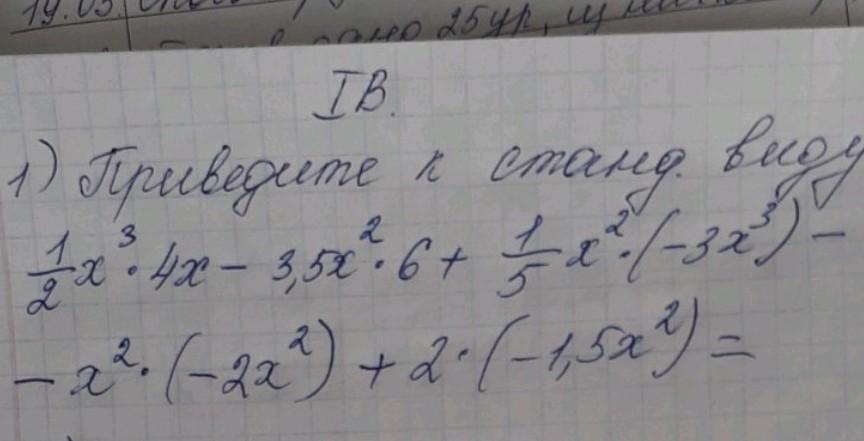 19.03.
25 ур,
I В.
1) Приведите к станд. виду
1/2 x³ · 4x − 3,5x² · 6 + 1/5 x² · (−3x³) −
− x² · (−2x²) + 2 · (−1,5x²) =